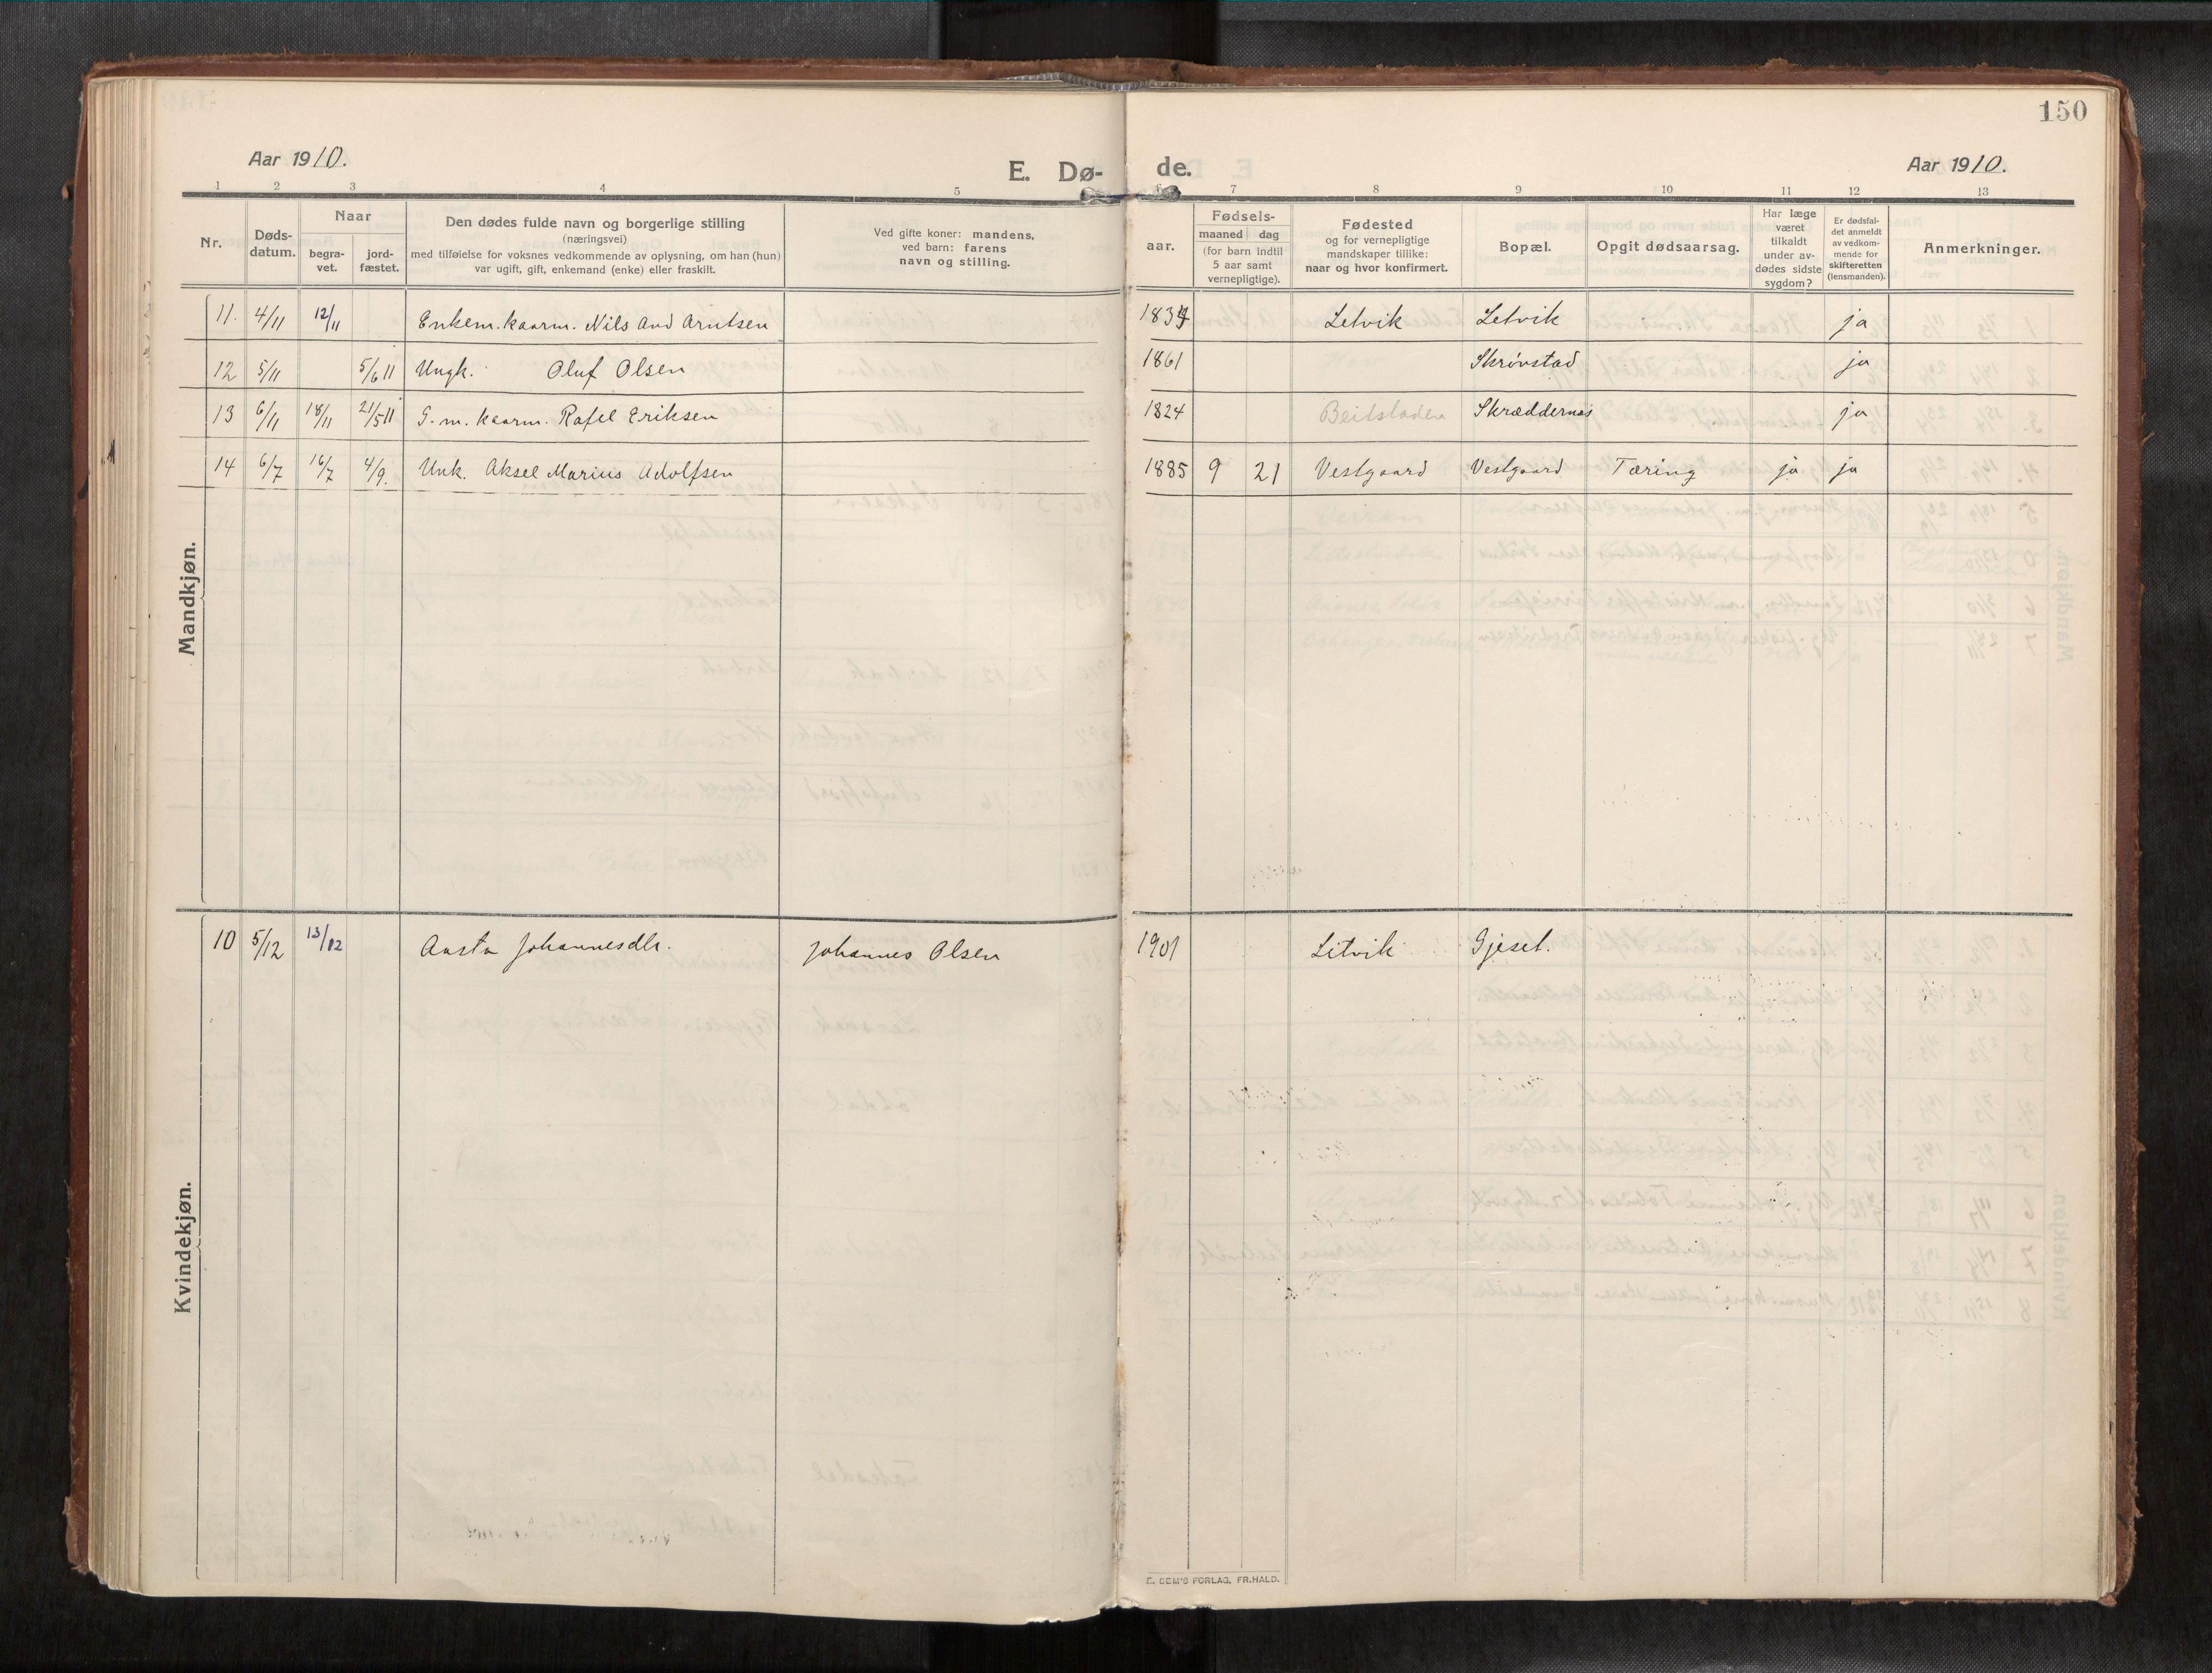 150
Aar 1910.
E. Dø-
de.
Aar 1910.
1 2 3 4 5 6 7 8 9 10 11 12 13
Nr.
Døds-
datum.
Naar
begra-
vet.
jord-
fæstet.
Den dødes fulde navn og borgerlige stilling
(næringsvei)
med tilføielse for voksnes vedkommende av oplysning, om han (hun)
var ugift, gift, enkemand (enke) eller fraskilt.
Ved gifte koner: mandens,
ved barn: farens
navn og stilling.
aar.
Fødsels-
maaned dag
(for barn indtil
5 aar samt
vernepligtige).
Fødested
og for vernepligtige
mandskaper tillike:
naar og hvor konfirmert.
Bopæl.
Opgit dødsaarsag.
Har læge
været
tilkaldt
under av-
dødes sidste
sygdom?
Er dødsfal-
det anmeldt
av vedkom-
mende for
skifteretten
(lensmanden).
Anmerkninger.
Mandkjøn.
11. 4/11 12/11 Enkem. kaarm. Nils And Arntsen 1834 Letvik Letvik ja
12 5/11 5/6 11 Ungk. Oluf Olsen 1861 Skrøvstad ja
13 6/11 18/11 21/5 11 G. m. kaarm. Rafel Eriksen 1824 Beitstaden Skræddernes ja
14 6/7 16/7 4/9. Unk. Aksel Marius Adolfsen 1885 9 21 Vestgaard Vestgaard Tæring ja ja
Kvindekjøn.
10 5/12 13/12 Aasta Johannesdtr. Johannes Olsen 1901 Letvik Gjeset.
E. SEM'S FORLAG, FR.HALD.